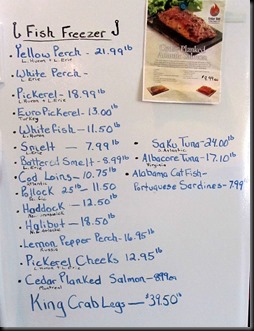 Fish Freezer
Pellow Perch - 21.99 lb
L. Huron + L. Erie
White Perch -
L. Erie
Pickerel - 18.99 lb
L. Huron + L. Erie
Euro Pickerel - 13.00 lb
Turkey
White Fish - 11.50 lb
L. Huron
Smelt - 7.99 lb
L. Erie
Battered Smelt - 8.99 lb
L. Erie
Cod Loins - 10.75 lb
Atlantic
Pollock 25 lb - 11.50
Pacific
Haddock - 12.50 lb
Halibut - 18.50 lb
Lemon Pepper Perch - 16.95 lb
Russia
Pickerel Cheeks 12.95 lb
L. Huron + L. Erie
Cedar Planked Salmon - 8.99 ea
Montreal
King Crab Legs - $39.50 lb
Cedar Planked
Atlantic Salmon
Saku Tuna - 24.00 lb
S. Atlantic
Albacore Tuna - 17.10 lb
Virginia
Alabama Catfish -
Portuguese Sardines - 7.99 lb